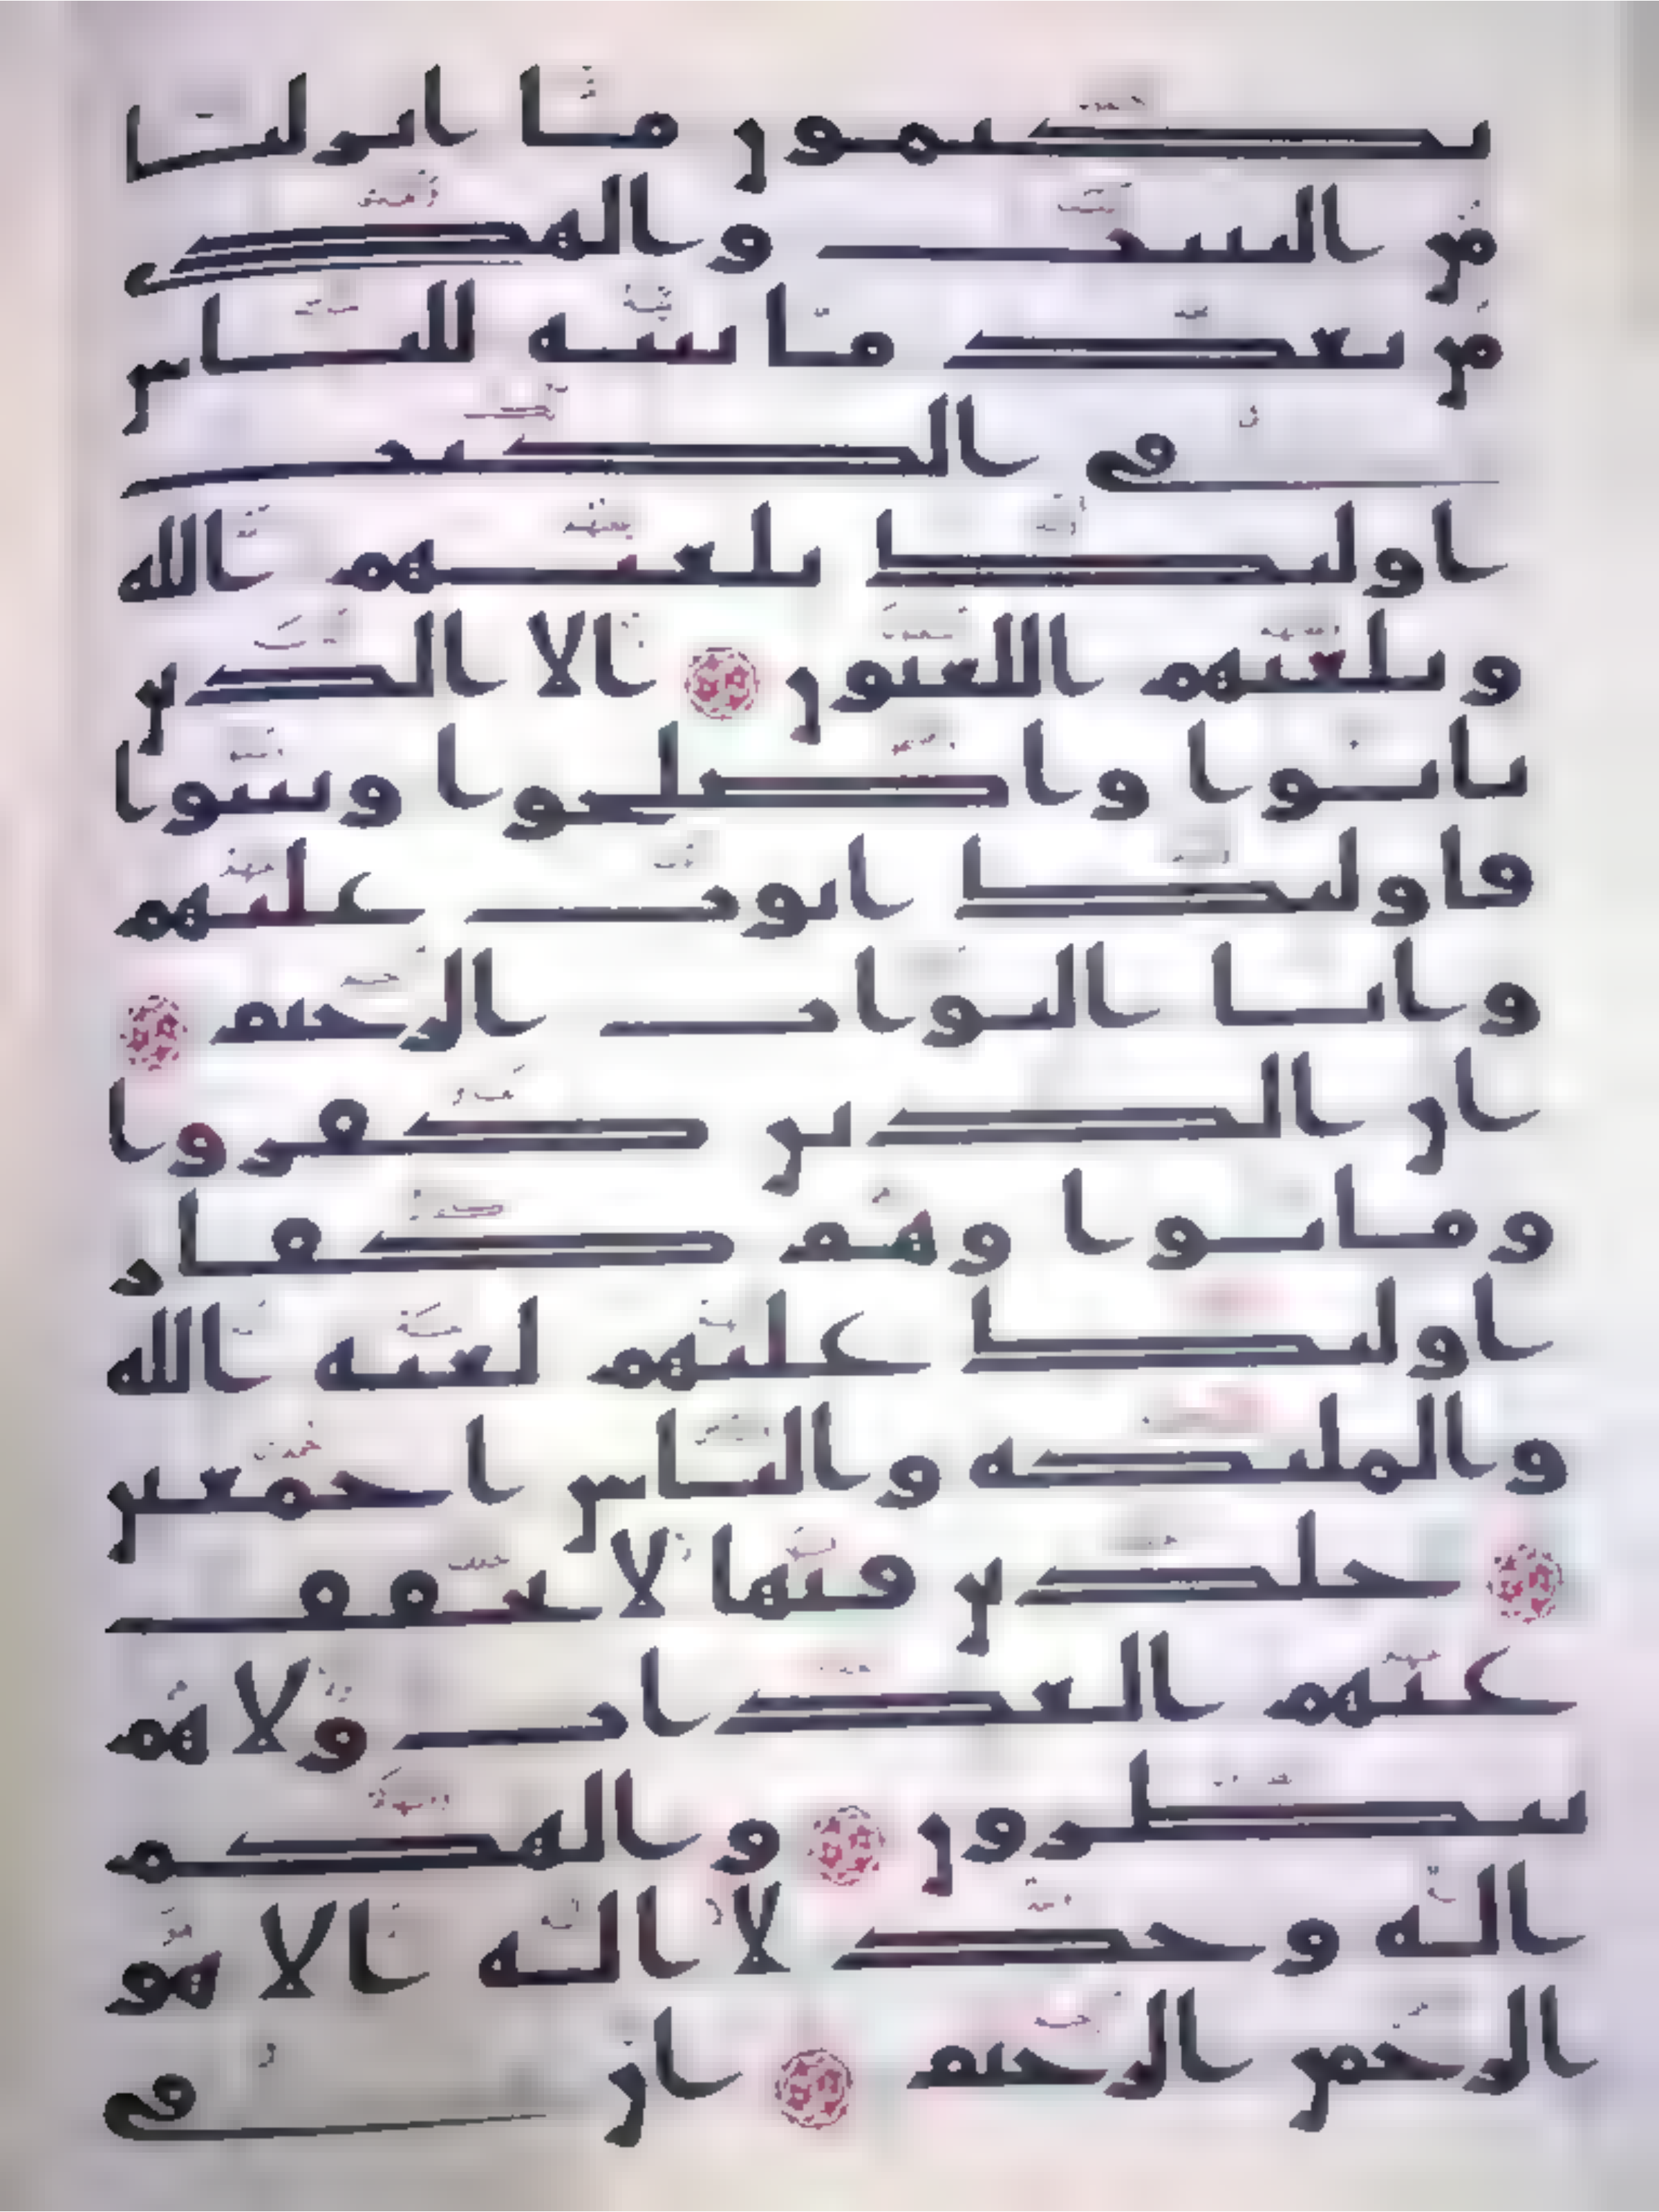 يكتمون ما انزلنا
من البينت والهدى
من بعد ما بينه للناس
في الكتب
اولئك يلعنهم الله
ويلعنهم اللعنون الا الذين
تابوا واصلحوا وبينوا
فاولئك اتوب عليهم
وانا التواب الرحيم
ان الذين كفروا
وماتوا وهم كفار
اولئك عليهم لعنة الله
والملئكة والناس اجمعين
خلدين فيها لا يخفف
عنهم العذاب ولا هم
ينظرون والهكم
اله وحد لا اله الا هو
الرحمن الرحيم ان في